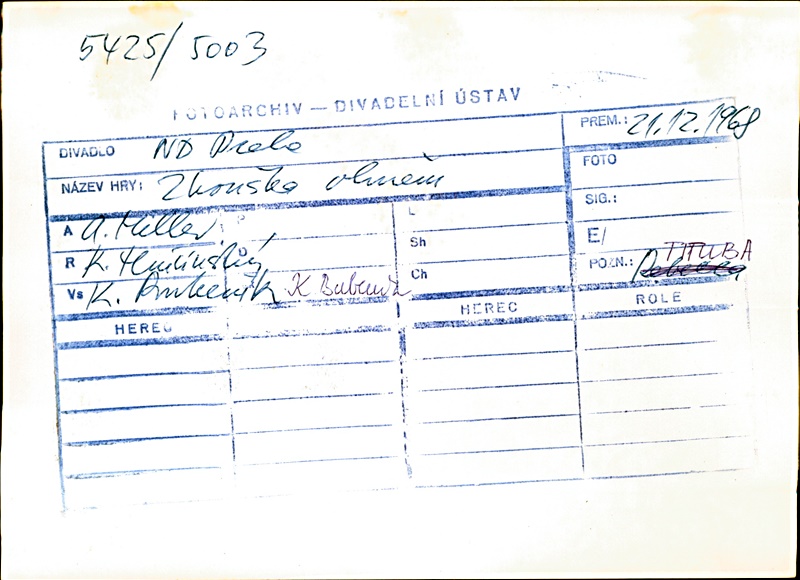 5425/5003
FOTOARCHIV — DIVADELNÍ ÚSTAV
DIVADLO ND Praha PREM.: 21.12.1968
NÁZEV HRY: Zkouška ohněm FOTO
SIG.:
A A. Miller P L
E/
R K. D Sh
POZN.: TITUBA
Vs K. Bubeník K Bubeník Ch
HEREC HEREC ROLE